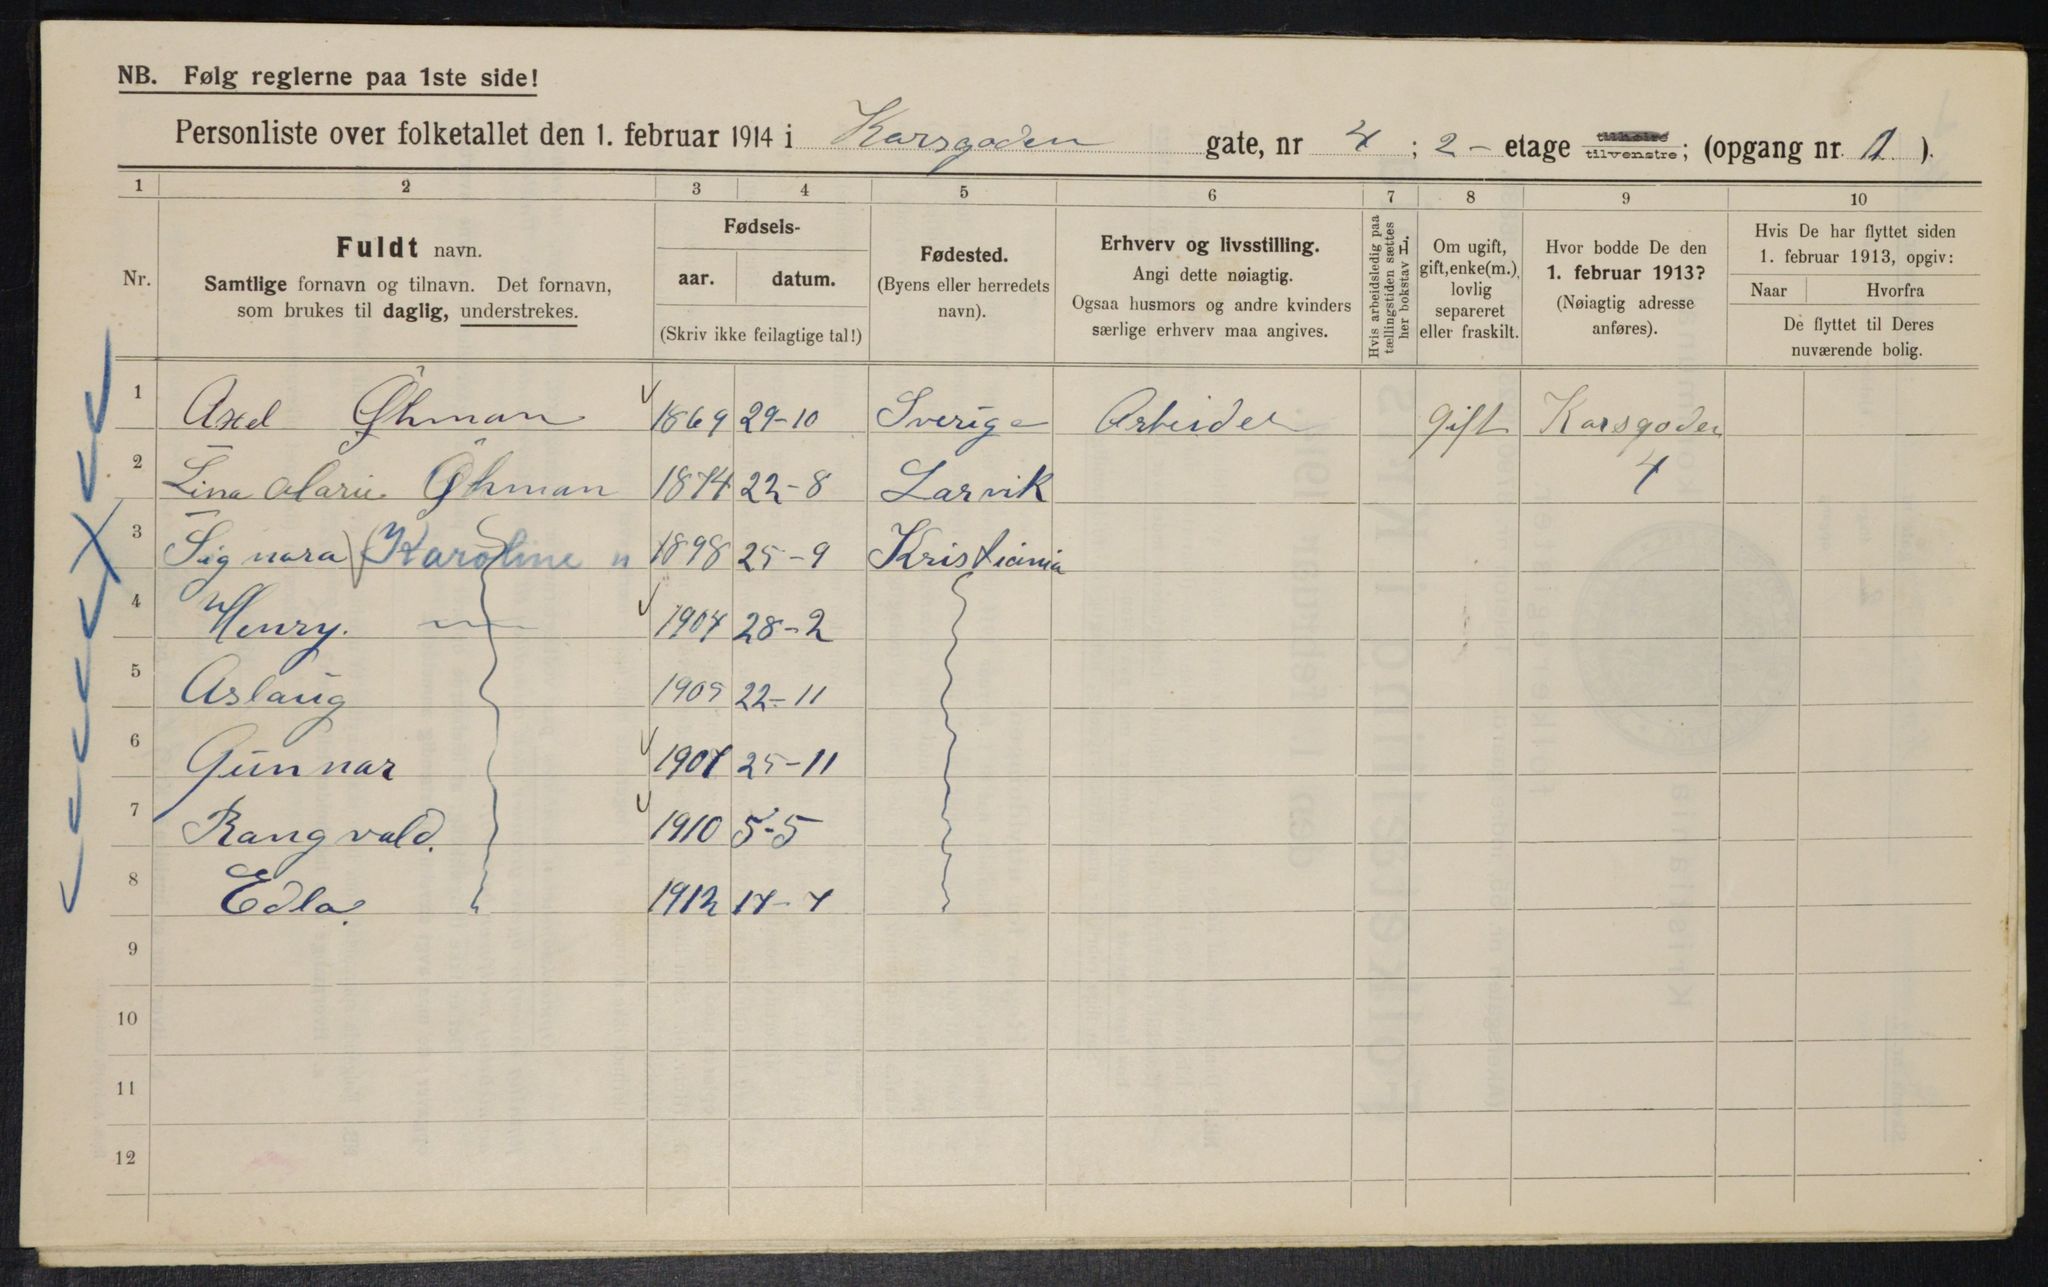 NB. Følg reglerne paa 1ste side!
Personliste over folketallet den 1. februar 1914 i Korsgaden gate, nr 4 ; 2 - etage tilhøire tilvenstre; (opgang nr. 1 ).
1 2 3 4 5 6 7 8 9 10
Nr.
Fuldt navn.
Samtlige fornavn og tilnavn. Det fornavn,
som brukes til daglig, understrekes.
Fødsels-
aar. datum.
(Skriv ikke feilagtige tal!)
Fødested.
(Byens eller herredets
navn).
Erhverv og livsstilling.
Angi dette nøiagtig.
Ogsaa husmors og andre kvinders
særlige erhverv maa angives.
Hvis arbeidsledig paa
tællingstiden sættes
her bokstav L.
Om ugift,
gift, enke(m.),
lovlig
separeret
eller fraskilt.
Hvor bodde De den
1. februar 1913?
(Nøiagtig adresse
anføres).
Hvis De har flyttet siden
1. februar 1913, opgiv:
Naar Hvorfra
De flyttet til Deres
nuværende bolig.
1 Axel Öhman 1869 29-10 Sverige Arbeider gift Korsgaden
2 Lina Marie Öhman 1874 22-8 Larvik 4
3 Signora (Karoline " 1898 25-9 Kristiania
4 Henry. — 1904 28-2
5 Aslaug 1905 22-11
6 Gunnar 1907 25-11
7 Rangvald. 1910 5-5
8 Edla. 1912 14-4
9
10
11
12